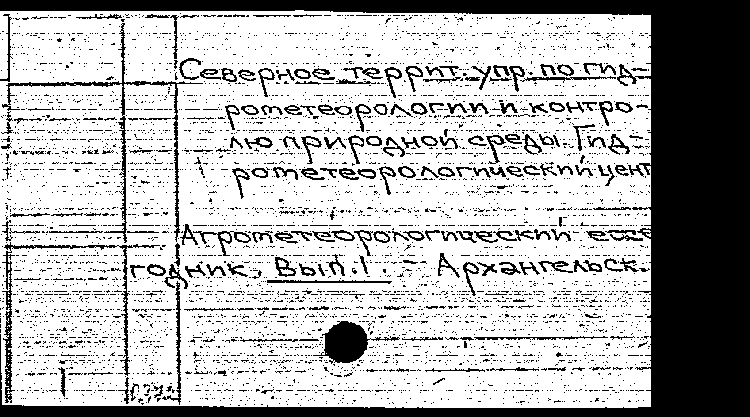 Северное террит. упр. по гид-
рометеорологии и контро-
лю природной среды. Гид-
рометеорологический цент
Агрометеорологический еже
годник. Вып. 1. — Архангельск.